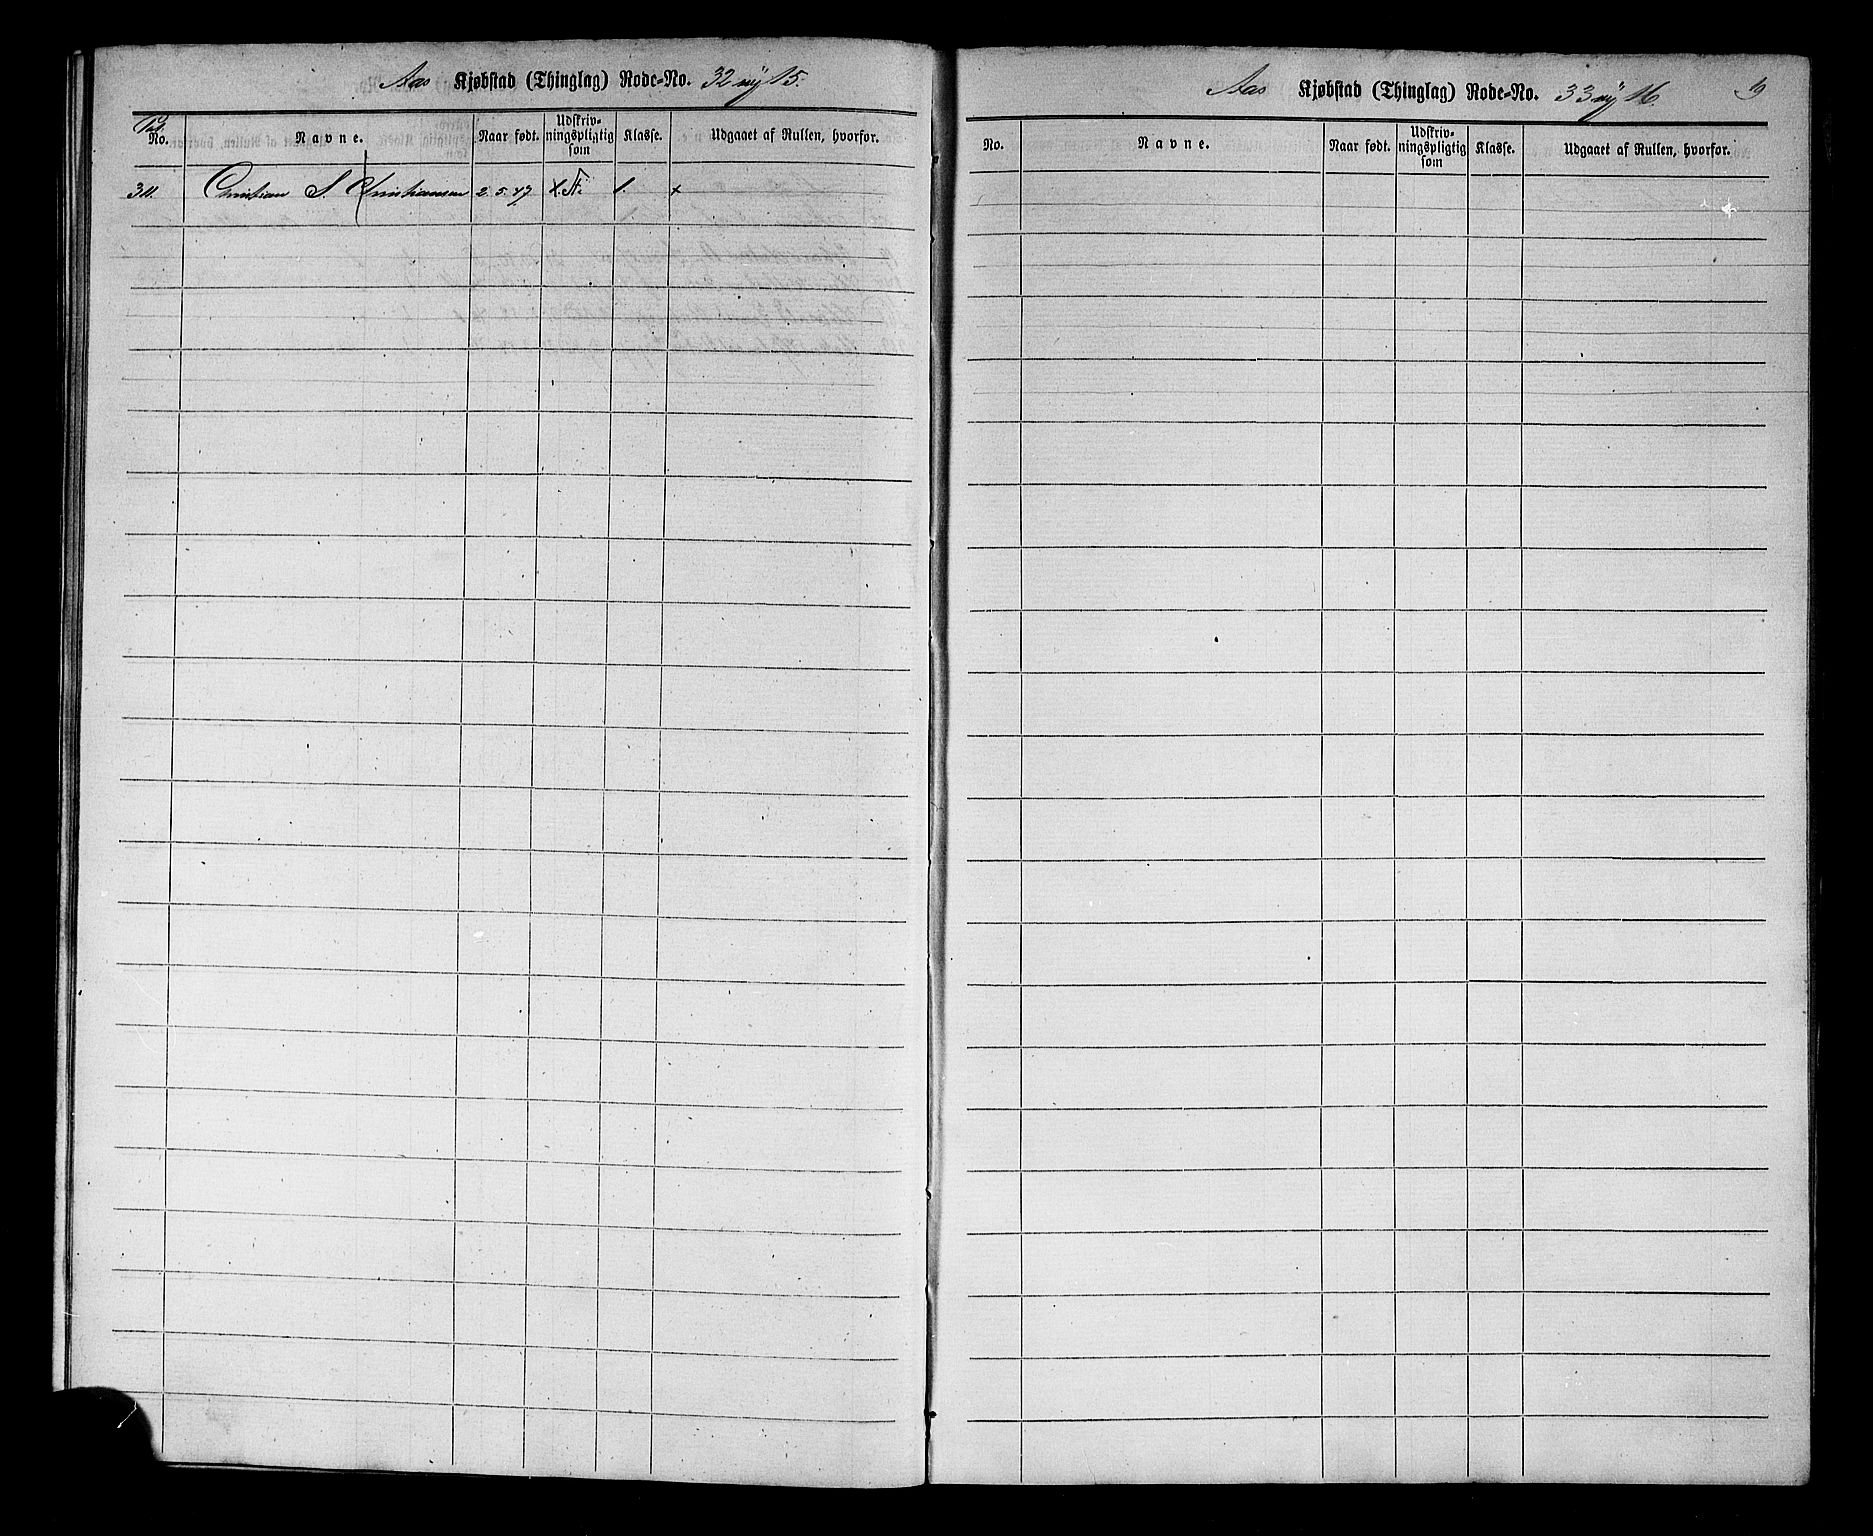 Aas Kjøbstad (Thinglag) Rode-No. 32 ny 15.
No. Navne. Naar født. Udskriv-ningspligtig som Klasse. Udgaaet af Rullen, hvorfor.
311. Christian S. Christiansen 2.5.47 1. +
Aas Kjøbstad (Thinglag) Rode-No. 33 ny 16. 9
No. Navne. Naar født. Udskriv-ningspligtig som Klasse. Udgaaet af Rullen, hvorfor.